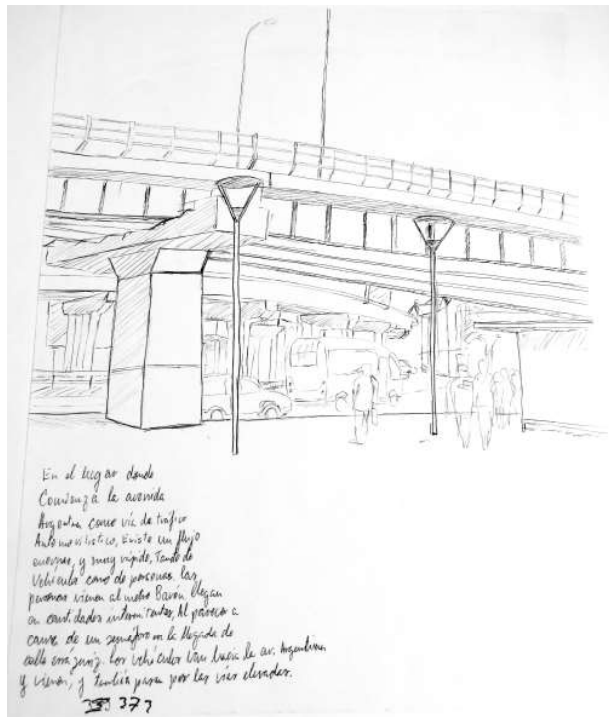 En el lugar donde
Comienza la avenida
Argentina como vía de tráfico
Automovilistico, Existe un flujo
enorme, y muy rápido, Tanto de
Vehículos como de personas. las
personas vienen al metro Barón llegan
en cantidades intermitentes, Al parecer a
causa de un semáforo en la llegada de
calle errázuriz. Los vehículos van hacia la av. Argentina
y vienen, y también pasan por las vias elevadas.
373